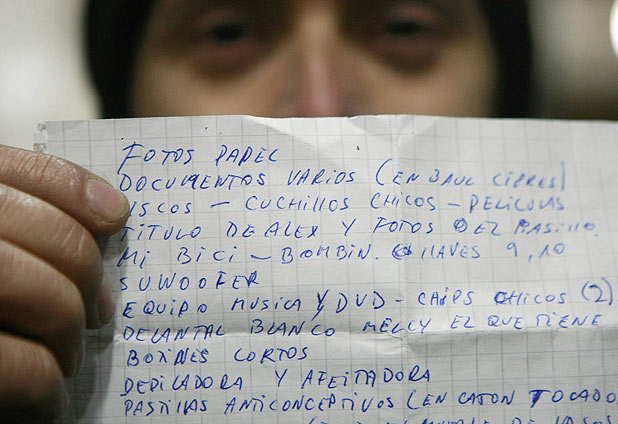 FOTOS PAPEL
DOCUMENTOS VARIOS (EN BAUL CIPRES)
ISCOS - CUCHILLOS CHICOS - PELICULAS
TITULO DE ALEX Y FOTOS DEL PASILLO.
MI BICI - BOMBIN. LLAVES 9,10
SUWOOFER
EQUIPO MUSICA Y DVD - CHIPS CHICOS (2)
DELANTAL BLANCO MELLY EL QUE TIENE
BOTINES CORTOS
DEPILADORA Y AFEITADORA
PASTILLAS ANTICONCEPTIVOS (EN CAJON TOCADO
DE VASOS